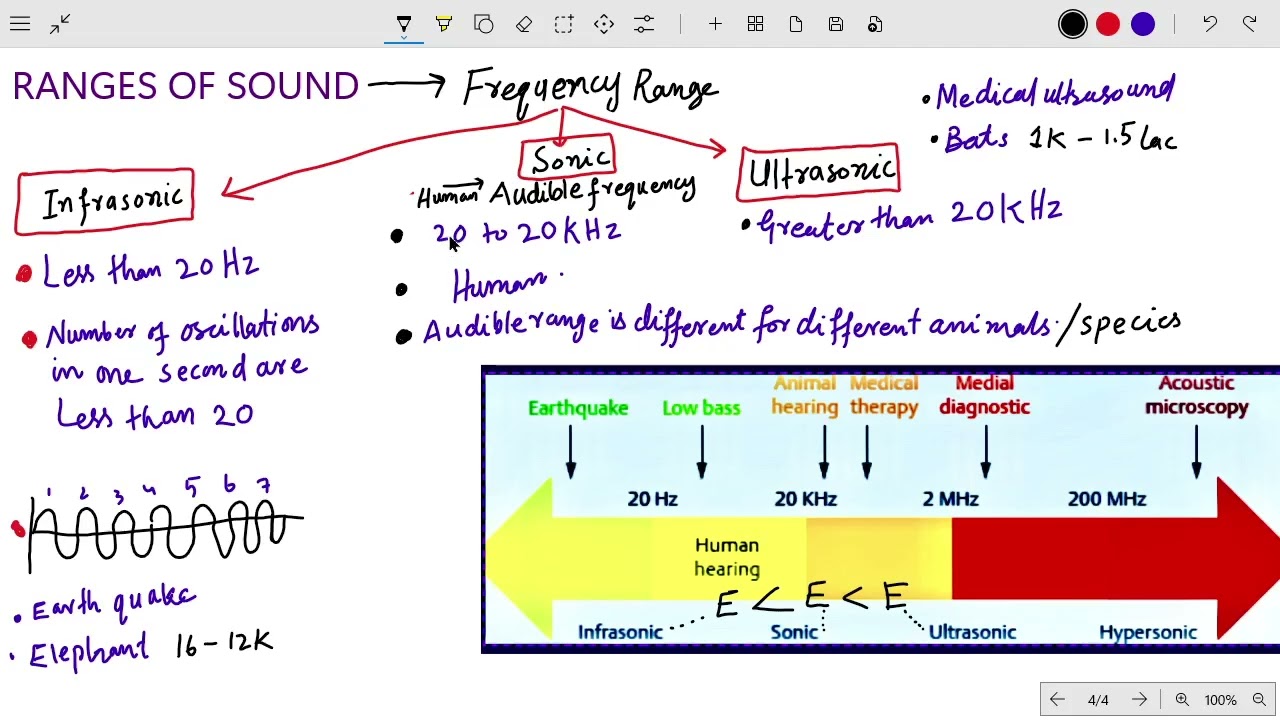 RANGES OF SOUND → Frequency Range
• Medical ultrasound
• Bats 1K - 1.5 Lac
Infrasonic
• Less than 20 Hz
• Number of oscillations
in one second are
Less than 20
1 2 3 4 5 6 7
• Earth quake
• Elephant 16 - 12K
Sonic
Human → Audible frequency
• 20 to 20 KHz
• Human
• Audible range is different for different animals. / species
Ultrasonic
• Greater than 20 KHz
Earthquake
Low bass
Animal hearing
Medical therapy
Medial diagnostic
Acoustic microscopy
20 Hz 20 KHz 2 MHz 200 MHz
Human
hearing
E < E < E
Infrasonic Sonic Ultrasonic Hypersonic
4/4 100%